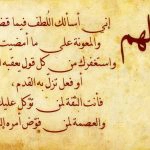 اللهم
إني أسألك اللطف فيما قضيت
والمعونة على ما أمضيت
واستغفرك من كل قول يعقبه
أو فعل تزل به القدم ،
فأنت الثقة لمن توكل عليك
والعصمة لمن فوض أمره